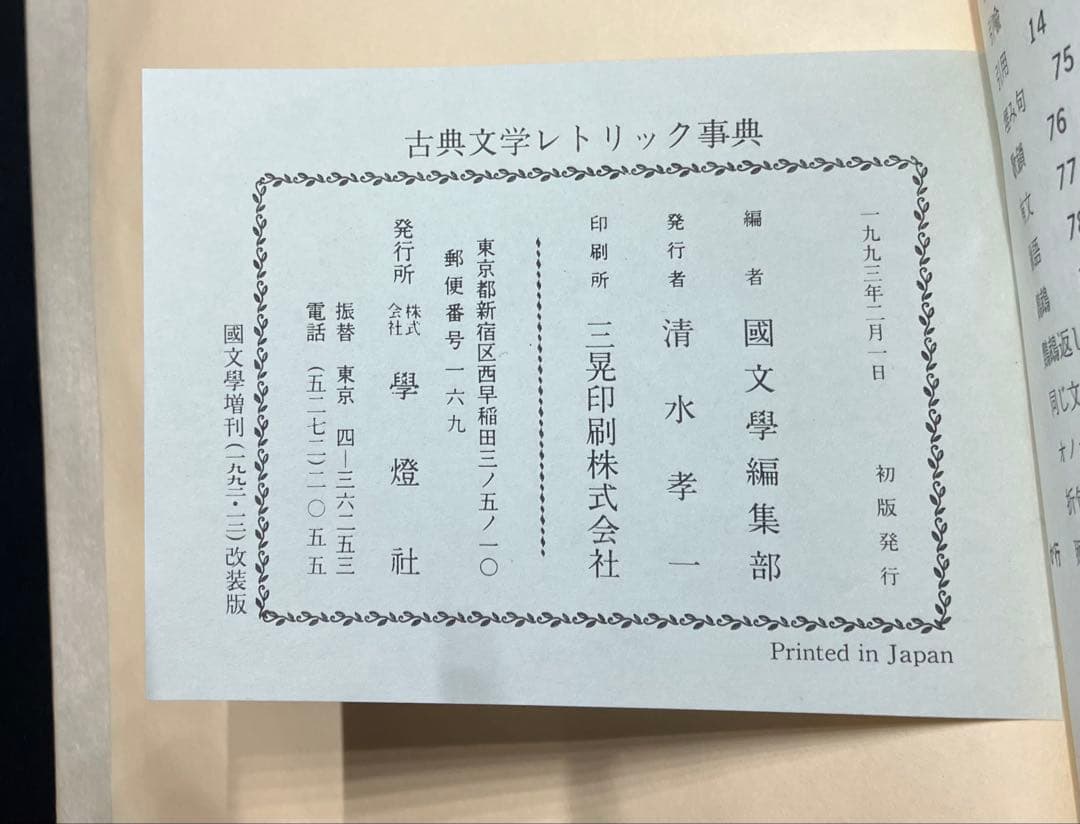 古典文学レトリック事典
一九九三年二月一日 初版発行
編者 國文學編集部
発行者 清水孝一
印刷所 三晃印刷株式会社
東京都新宿区西早稲田三ノ五ノ一〇
郵便番号一六九
発行所 株式会社 學燈社
振替 東京 四―三六二五三
電話 (五二七二)二〇五五
國文學増刊(一九九二・一二)改装版
Printed in Japan
14
引用 75
76
77
78
返し
同じ文